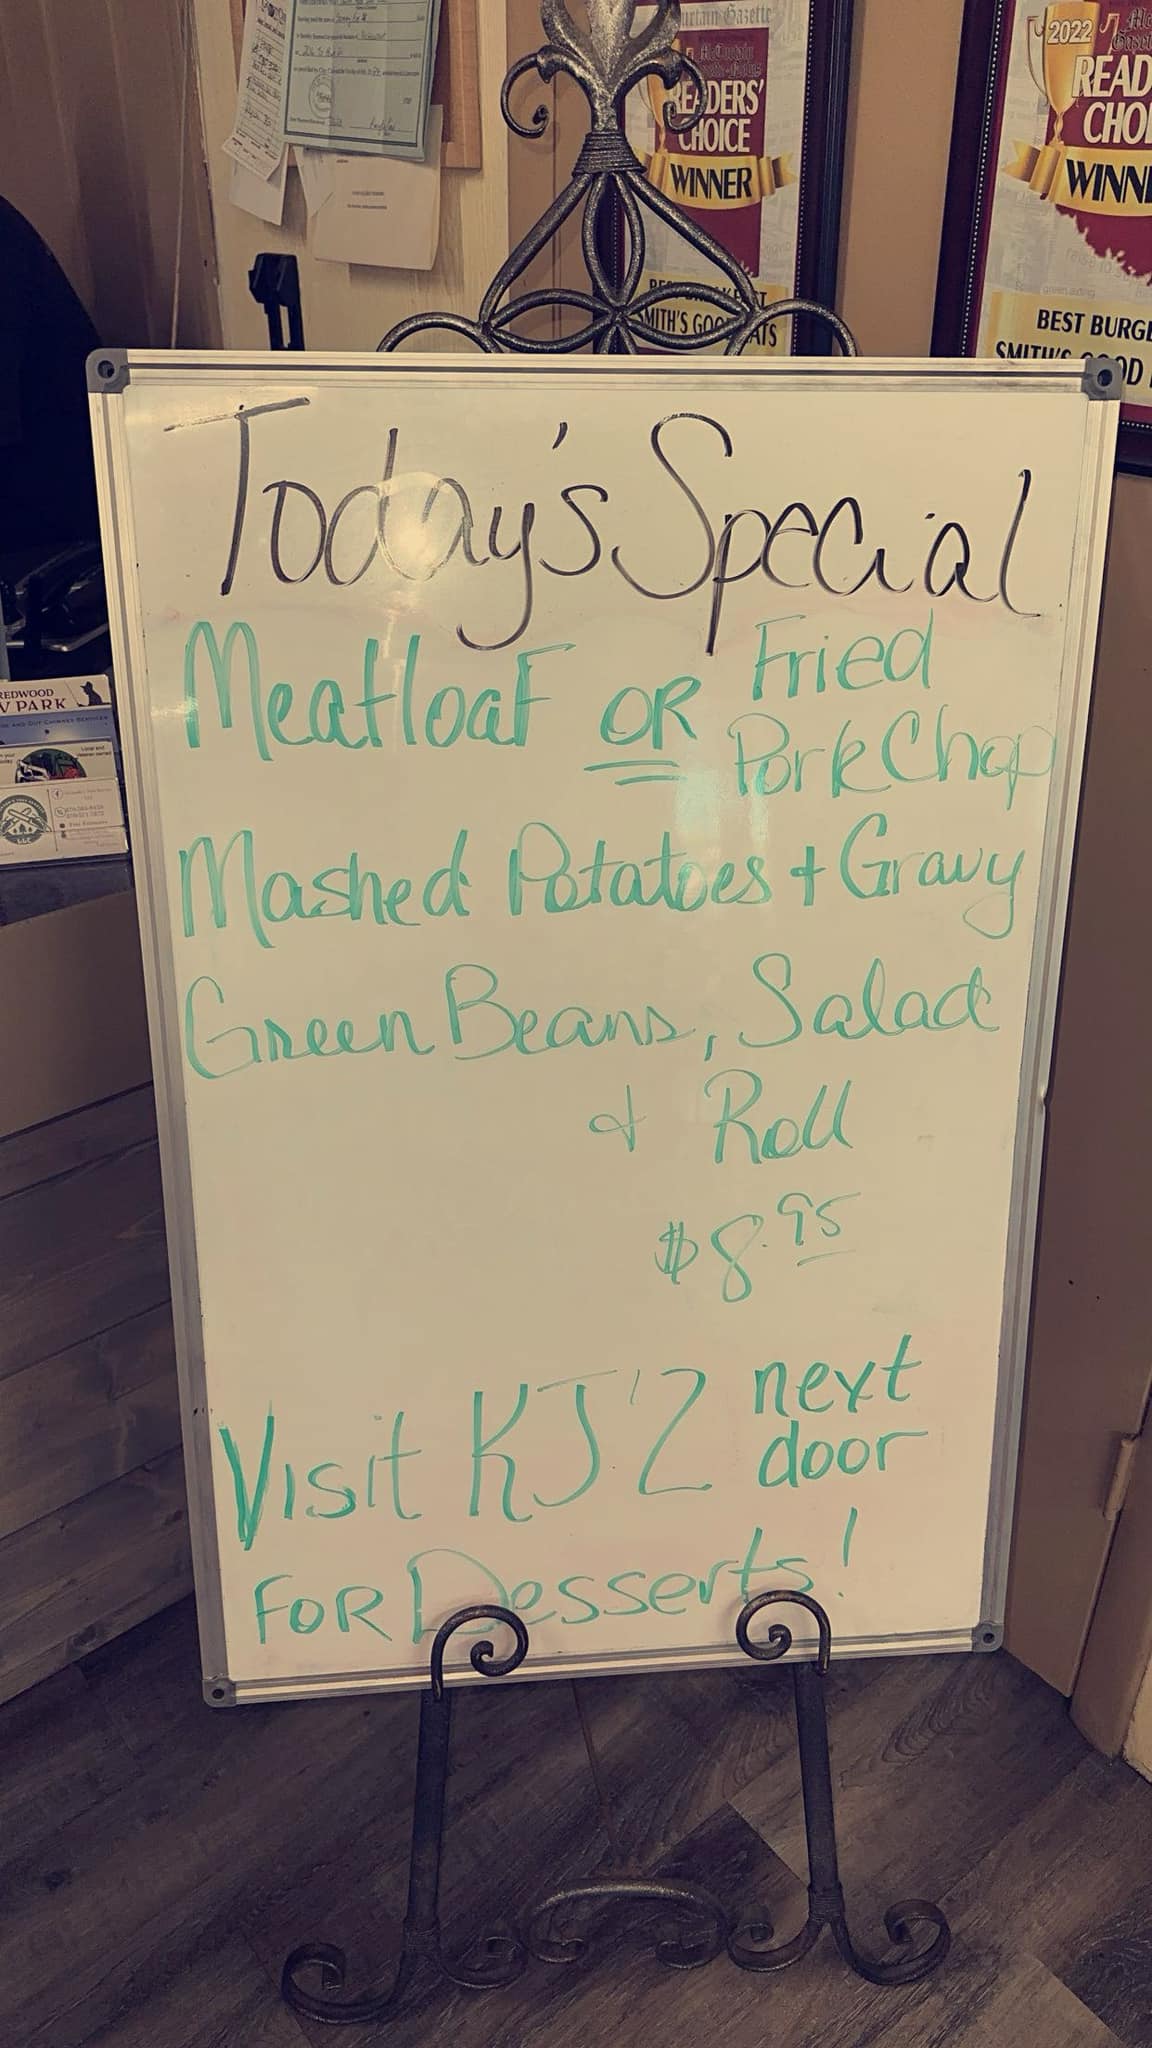 Curtain Gazette
READERS'
CHOICE
WINNER
SMITH'S GOOD EATS
2022
READ
CHOI
WINN
BEST BURGE
SMITH'S GOOD
REDWOOD
V PARK
Today's Special
Meatloaf OR Fried
Pork Chop
Mashed Potatoes + Gravy
Green Beans, Salad
& Roll
$8.95
Visit KJ'Z next
door
FOR Desserts!